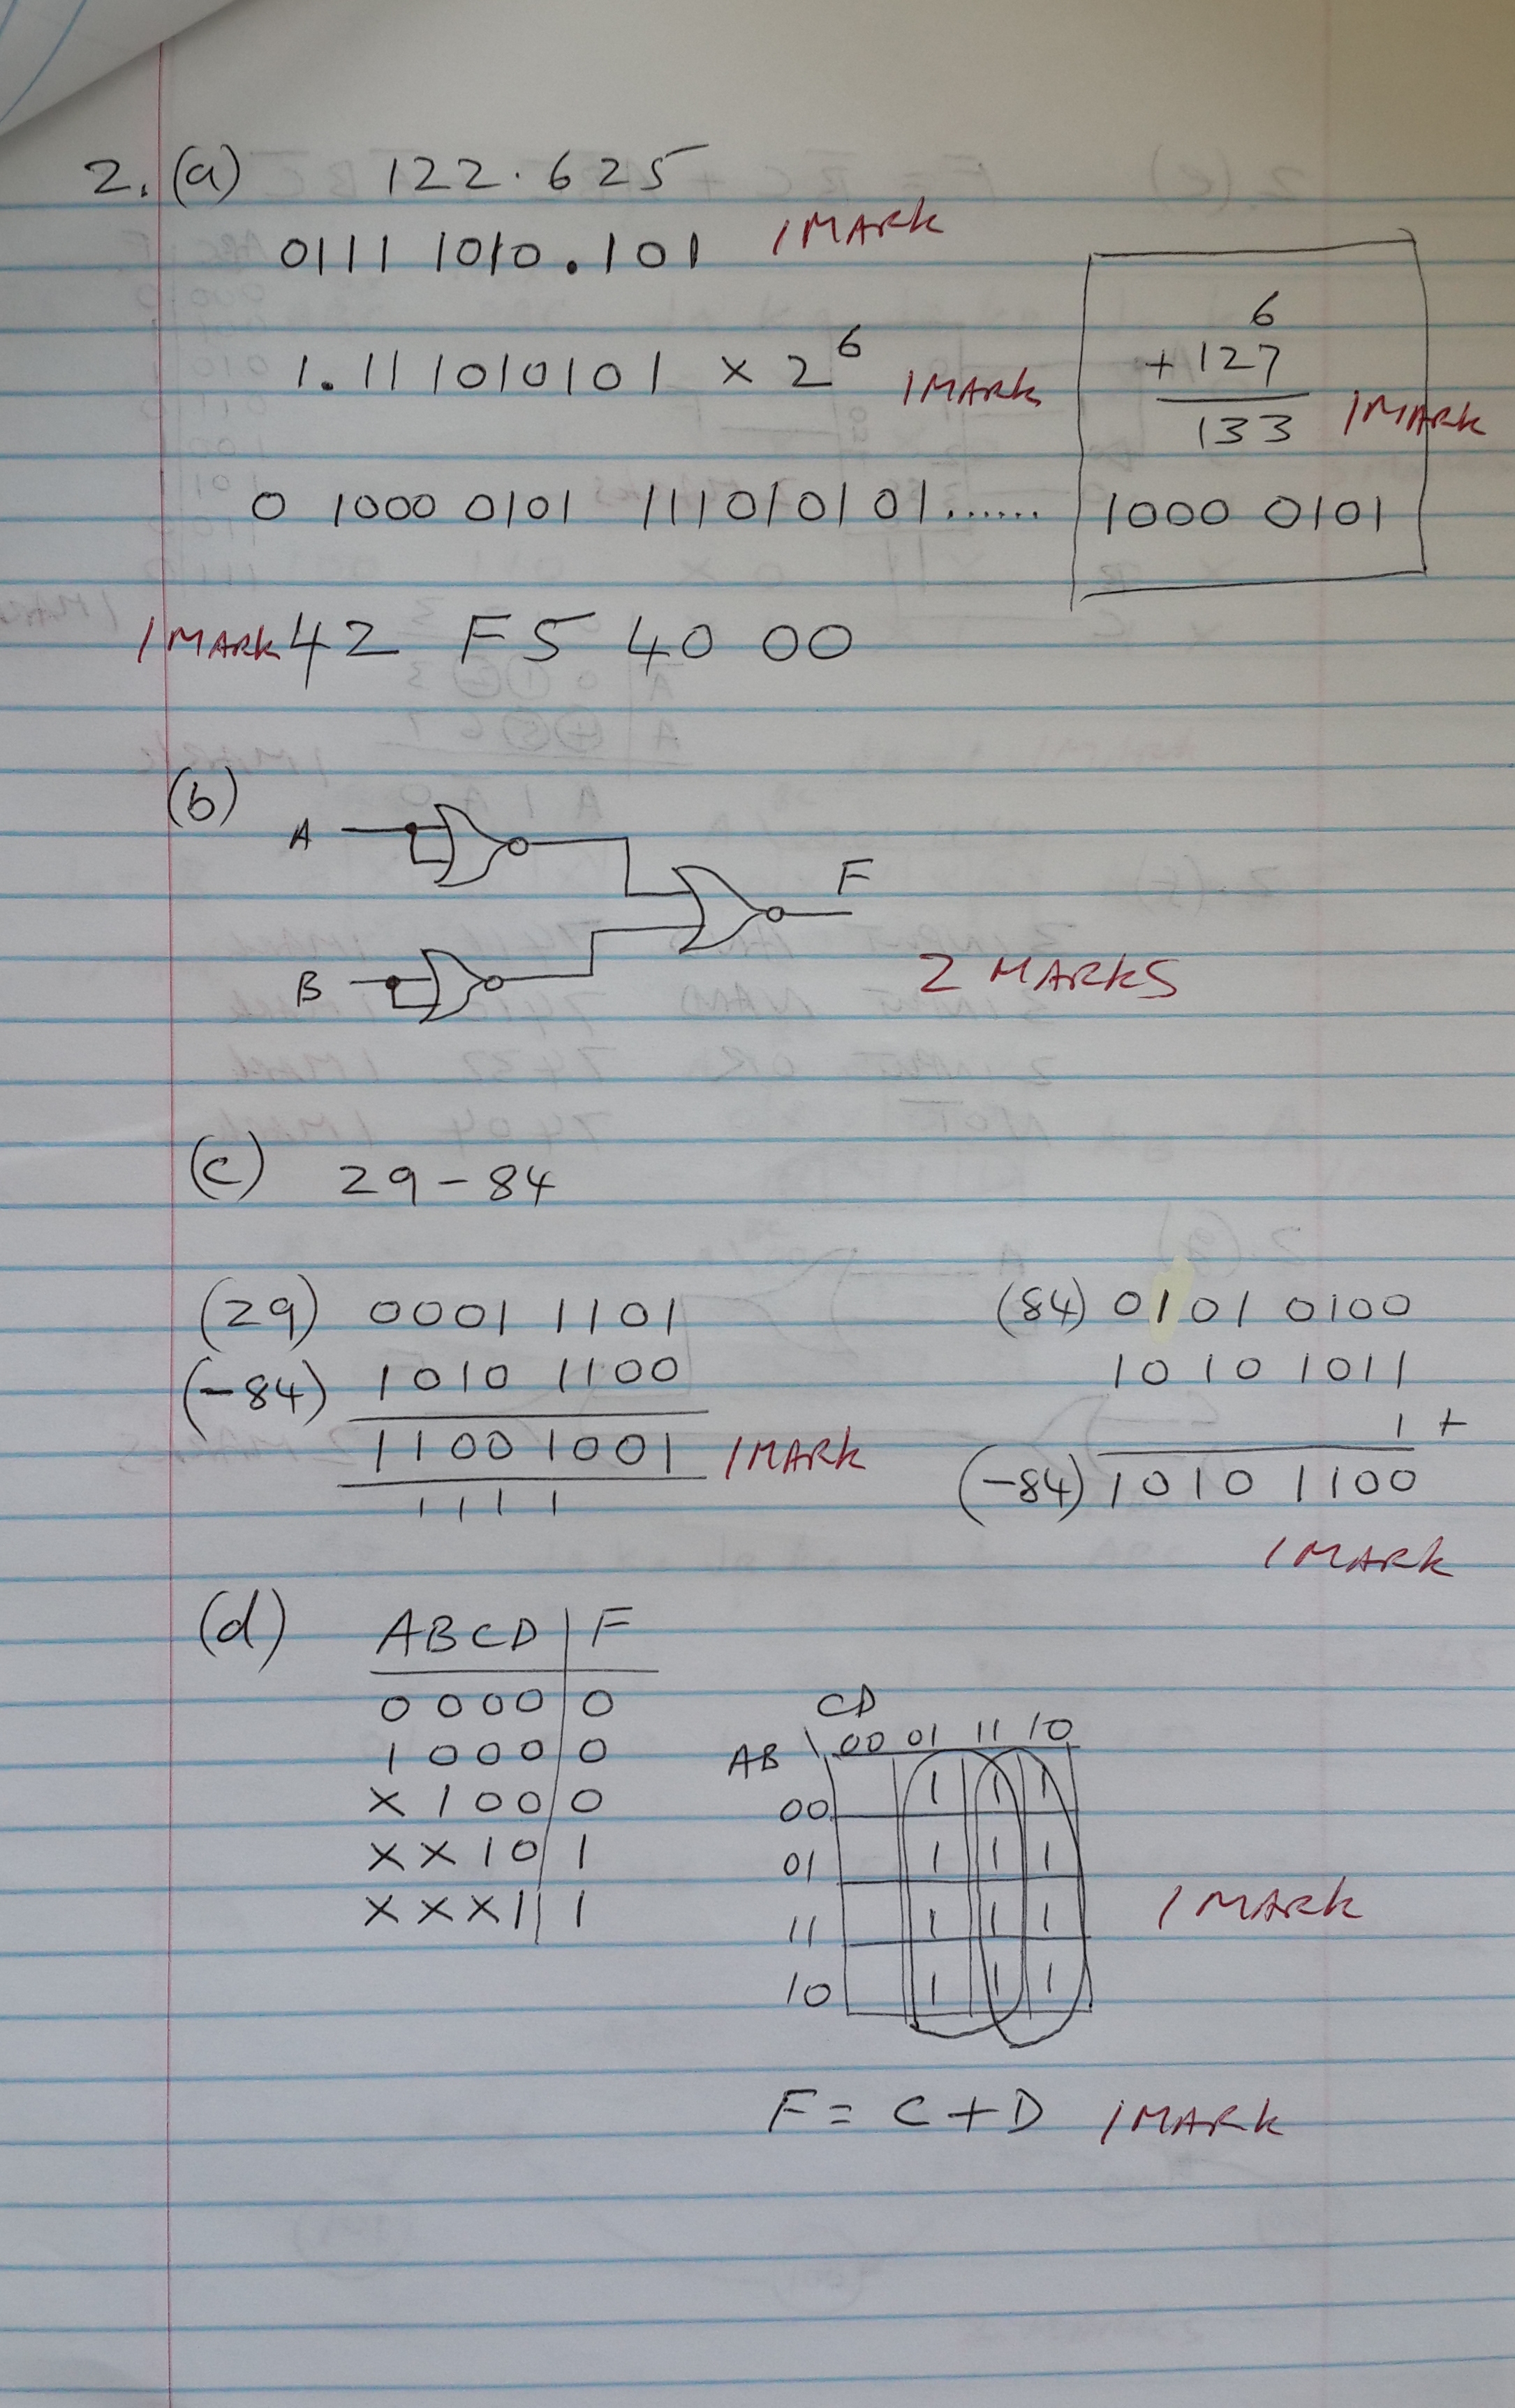 2. (a) 122.625
0111 1010.101 1 MARK
1.111010101 × 2^6 1 MARK
6
+ 127
133 1 MARK
1000 0101
0 1000 0101 111010101......
1 MARK 42 F5 40 00
(b)
A
F
B
2 MARKS
(c) 29 - 84
(29) 0001 1101
(-84) 1010 1100
1100 1001 1 MARK
1 1 1 1
(84) 0101 0100
1010 1011
1 +
(-84) 1010 1100
1 MARK
(d) A B C D | F
0 0 0 0 | 0
1 0 0 0 | 0
X 1 0 0 | 0
X X 1 0 | 1
X X X 1 | 1
CD
AB \ 00 01 11 10
00 1 1 1
01 1 1 1
11 1 1 1
10 1 1 1
1 MARK
F = C + D 1 MARK